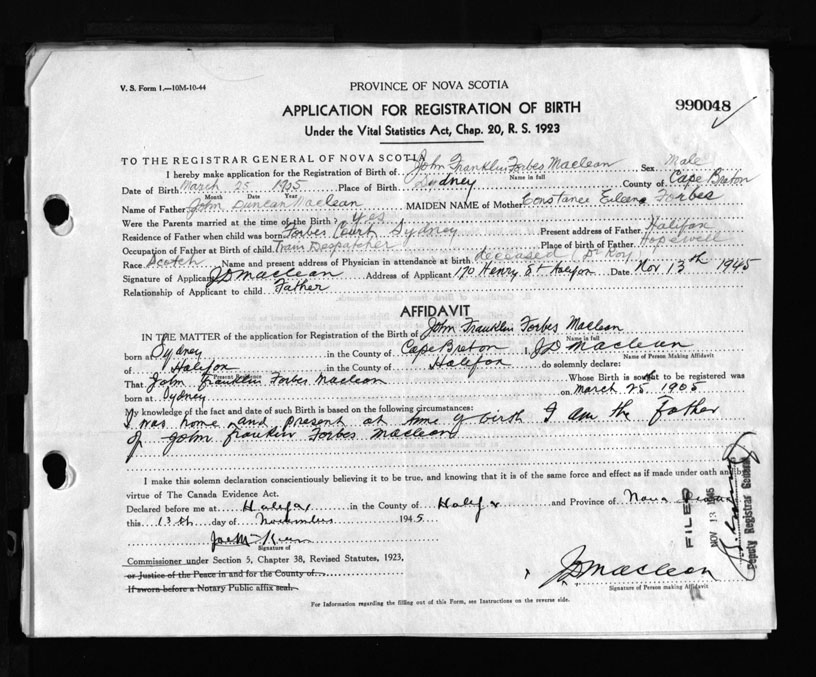 V. S. Form 1.—10M-10-44
PROVINCE OF NOVA SCOTIA
APPLICATION FOR REGISTRATION OF BIRTH
990048
Under the Vital Statistics Act, Chap. 20, R. S. 1923
TO THE REGISTRAR GENERAL OF NOVA SCOTIA
I hereby make application for the Registration of Birth of John Franklin Forbes Maclean Sex Male
Name in full
Date of Birth March 25 1905 Place of Birth Sydney County of Cape Breton
Month Date Year
Name of Father John Duncan Maclean MAIDEN NAME of Mother Constance Eileen Forbes
Were the Parents married at the time of the Birth? Yes
Residence of Father when child was born Forbes Court Sydney Present address of Father Halifax
Occupation of Father at Birth of child Train Despatcher Place of birth of Father Hopewell
Race Scotch Name and present address of Physician in attendance at birth deceased (Dr Roy)
Signature of Applicant JD Maclean Address of Applicant 170 Henry St Halifax Date Nov 13th 1945
Relationship of Applicant to child Father
AFFIDAVIT
IN THE MATTER of the application for Registration of the Birth of John Franklin Forbes Maclean
Name in full
born at Sydney in the County of Cape Breton I, JD Maclean
Name of Person Making Affidavit
of Halifax in the County of Halifax do solemnly declare:
Present Residence
That John Franklin Forbes Maclean Whose Birth is sought to be registered was
born at Sydney on March 25th 1905
My knowledge of the fact and date of such Birth is based on the following circumstances:
I was home and present at time of birth I am the Father
of John Franklin Forbes Maclean
I make this solemn declaration conscientiously believing it to be true, and knowing that it is of the same force and effect as if made under oath and by
virtue of The Canada Evidence Act.
Declared before me at Halifax in the County of Halifax and Province of Nova Scotia
this 13th day of November 1945
Signature of
Commissioner under Section 5, Chapter 38, Revised Statutes, 1923,
or Justice of the Peace in and for the County of
If sworn before a Notary Public affix seal.
JD Maclean
Signature of Person making Affidavit
For Information regarding the filling out of this Form, see Instructions on the reverse side.
FILED
NOV 13 1945
Deputy Registrar General